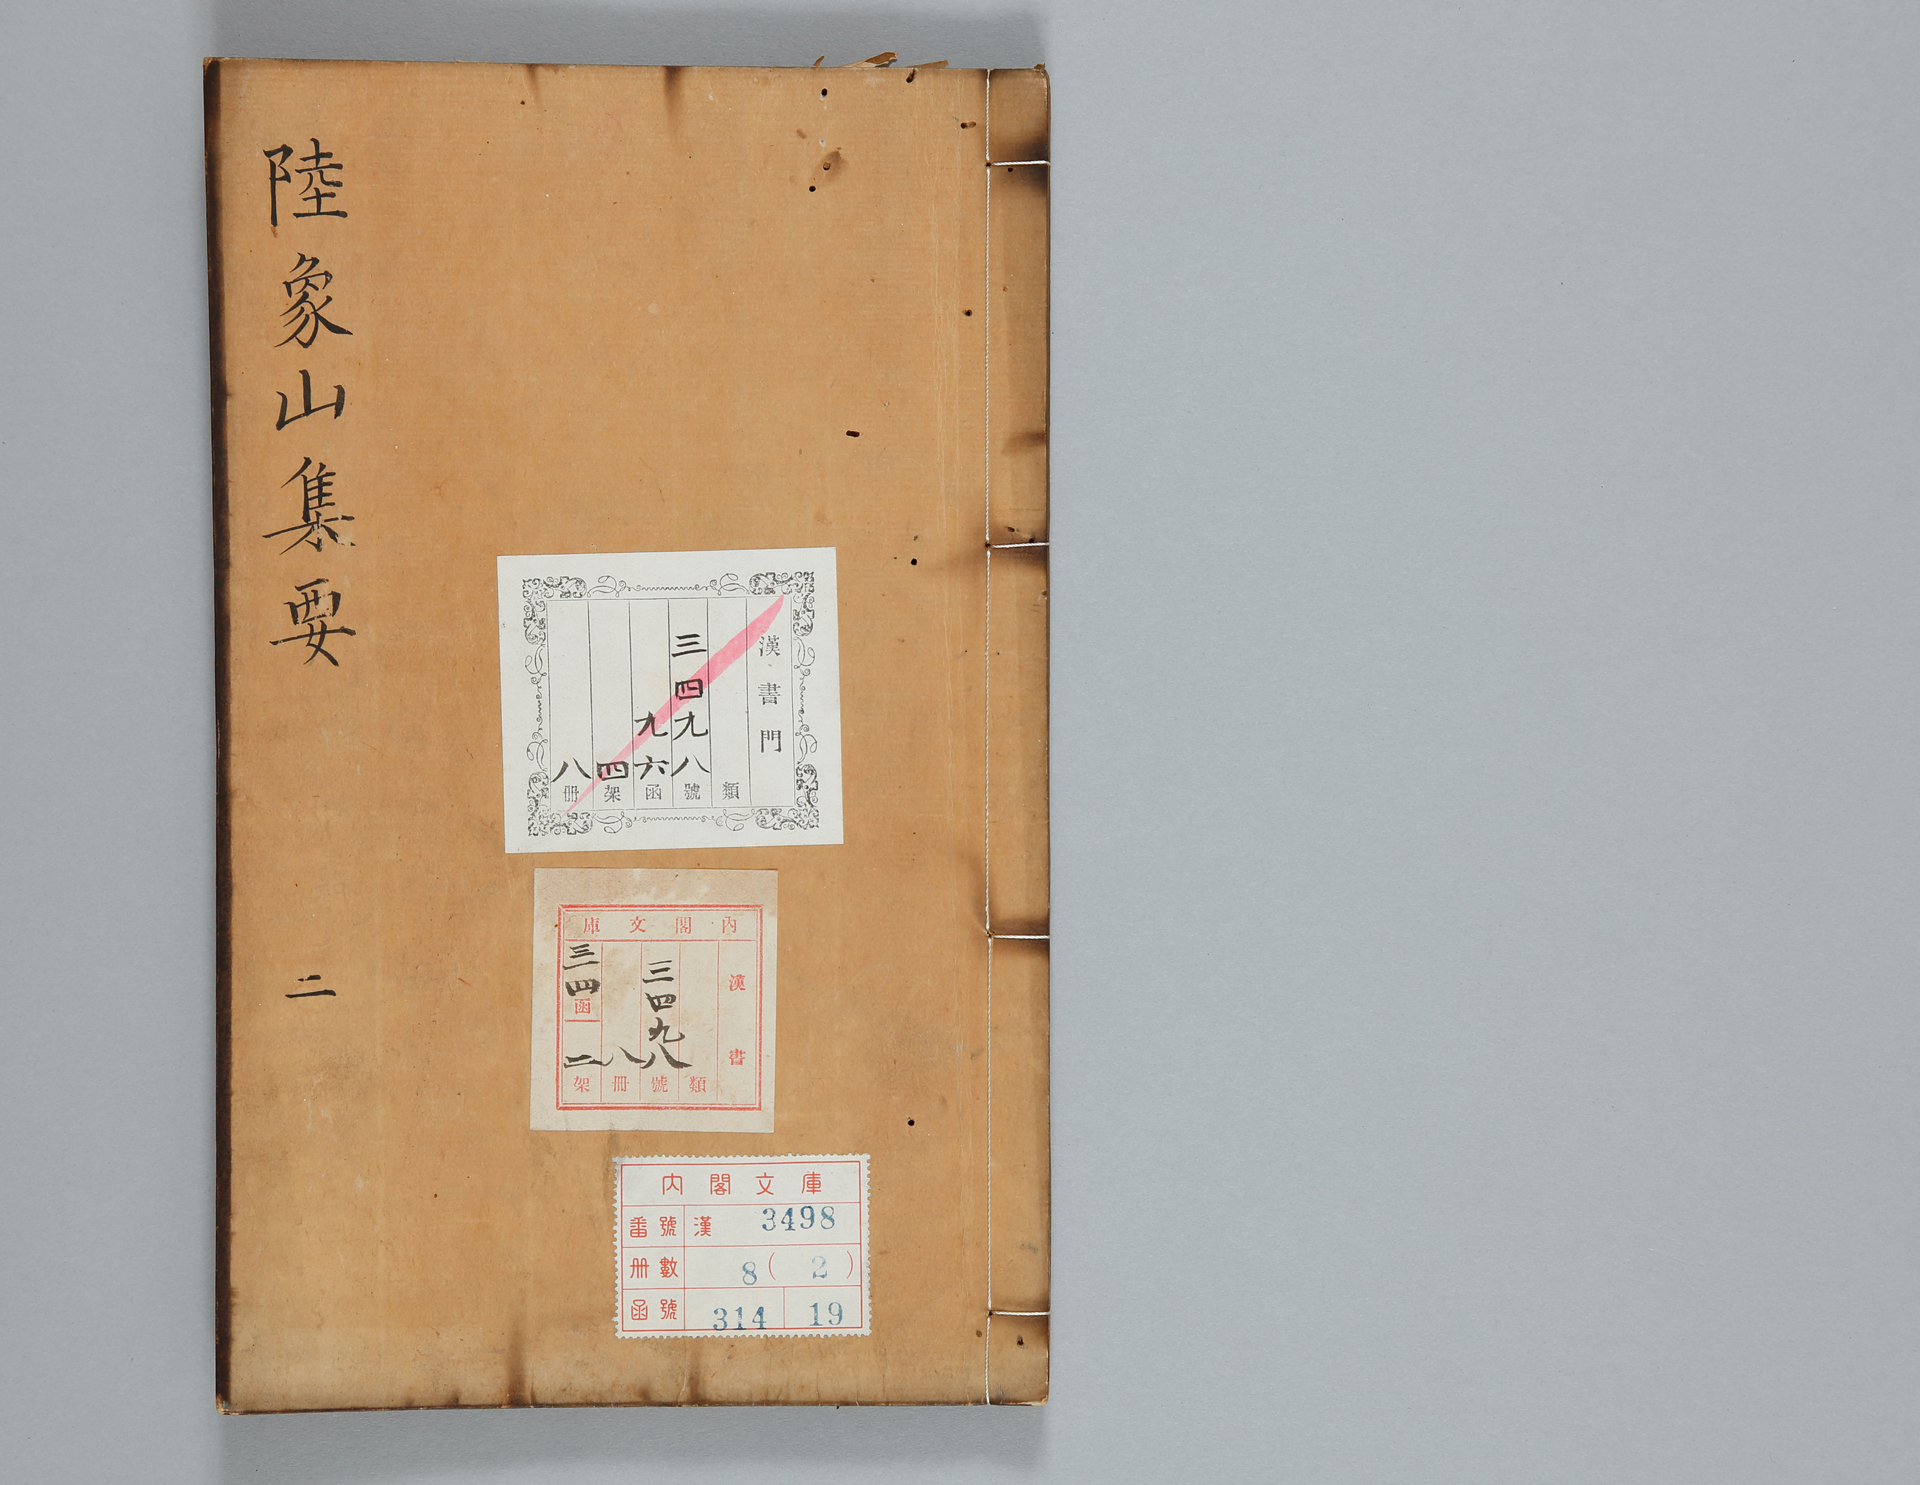 陸象山集要
二
漢書門
類
三四九八號
九六函
四架
八册
內閣文庫
漢書
類
三四九八號
八冊
三四函
二架
内閣文庫
番號 漢 3498
册數 8(2)
函號 314 19